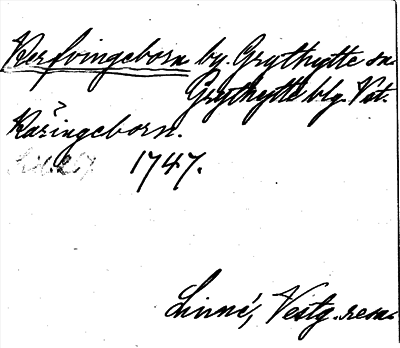 Kerfvingeborn by. Grythytte sn.
Grythytte blg. Vst.
?
Käringeborn.
1747.
Linné, Vestg. resa.